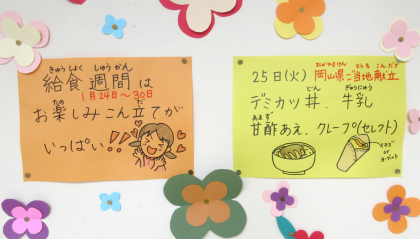 きゅうしょく しゅうかん
給食週間は
1月24日〜30日
お楽しみこん立てが
たの だ
いっぱい!!
おかやまけん とうち こんだて
25日(火) 岡山県ご当地献立
どん ぎゅうにゅう
デミカツ丼、牛乳
あまず
甘酢あえ、クレープ(セレクト)
イチゴ
or
ヨーグルト